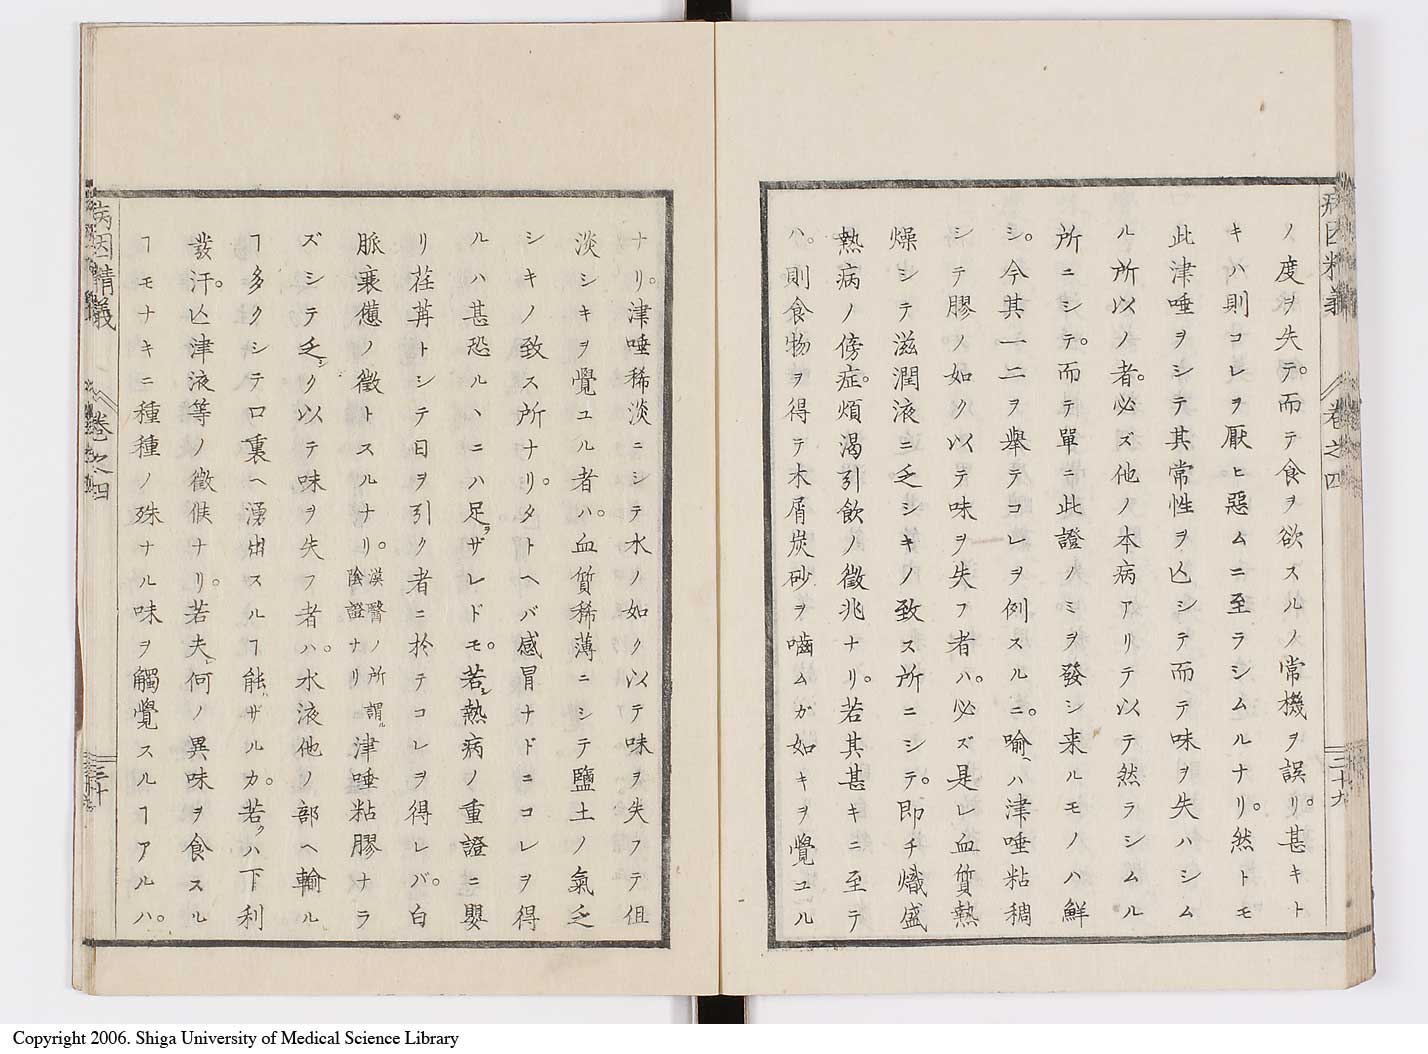 病因精義 卷之四 二十九
ノ度ヲ失テ。而テ食ヲ欲スルノ常機ヲ誤リ。甚キト
キハ則コレヲ厭ヒ惡ムニ至ラシムルナリ。然トモ
此津唾ヲシテ其常性ヲ亾シテ而テ味ヲ失ハシム
ル所以ノ者。必ズ他ノ本病アリテ以テ然ラシムル
所ニシテ。而テ單ニ此證ノミヲ發シ来ルモノハ鮮
シ。今其一二ヲ舉テコレヲ例スルニ。喻ヘハ津唾粘稠
シテ膠ノ如ク以テ味ヲ失フ者ハ。必ズ是レ血質熱
燥シテ滋潤液ニ乏シキノ致ス所ニシテ。即チ熾盛
熱病ノ傍症。煩渴引飲ノ徵兆ナリ。若其甚キニ至テ
ハ。則食物ヲ得テ木屑炭砂ヲ嚙ムガ如キヲ覺ユル
ナリ。津唾稀淡ニシテ水ノ如ク以テ味ヲ失フテ但
淡シキヲ覺ユル者ハ。血質稀薄ニシテ鹽土ノ氣乏
シキノ致ス所ナリ。タトヘバ感冒ナドニコレヲ得
ルハ甚恐ルヽニハ足ヲザレドモ。若シ熱病ノ重證ニ嬰
リ荏苒トシテ日ヲ引ク者ニ於テコレヲ得レバ。白
脈衰憊ノ徵トスルナリ。漢醫ノ所謂ル陰證ナリ津唾粘膠ナラ
ズシテ乏シク以テ味ヲ失フ者ハ。水液他ノ部ヘ輸ル
ヿ多クシテ口裏ヘ湧出スルヿ能ハザルカ。若クハ下利
發汗。亾津液等ノ徵候ナリ。若夫レ何ノ異味ヲ食スル
ヿモナキニ種種ノ殊ナル味ヲ觸覺スルヿアルハ。
病因精義 卷之四 三十
Copyright 2006. Shiga University of Medical Science Library